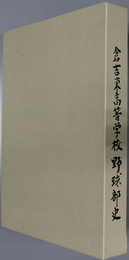 倉吉東高等学校 野球部史